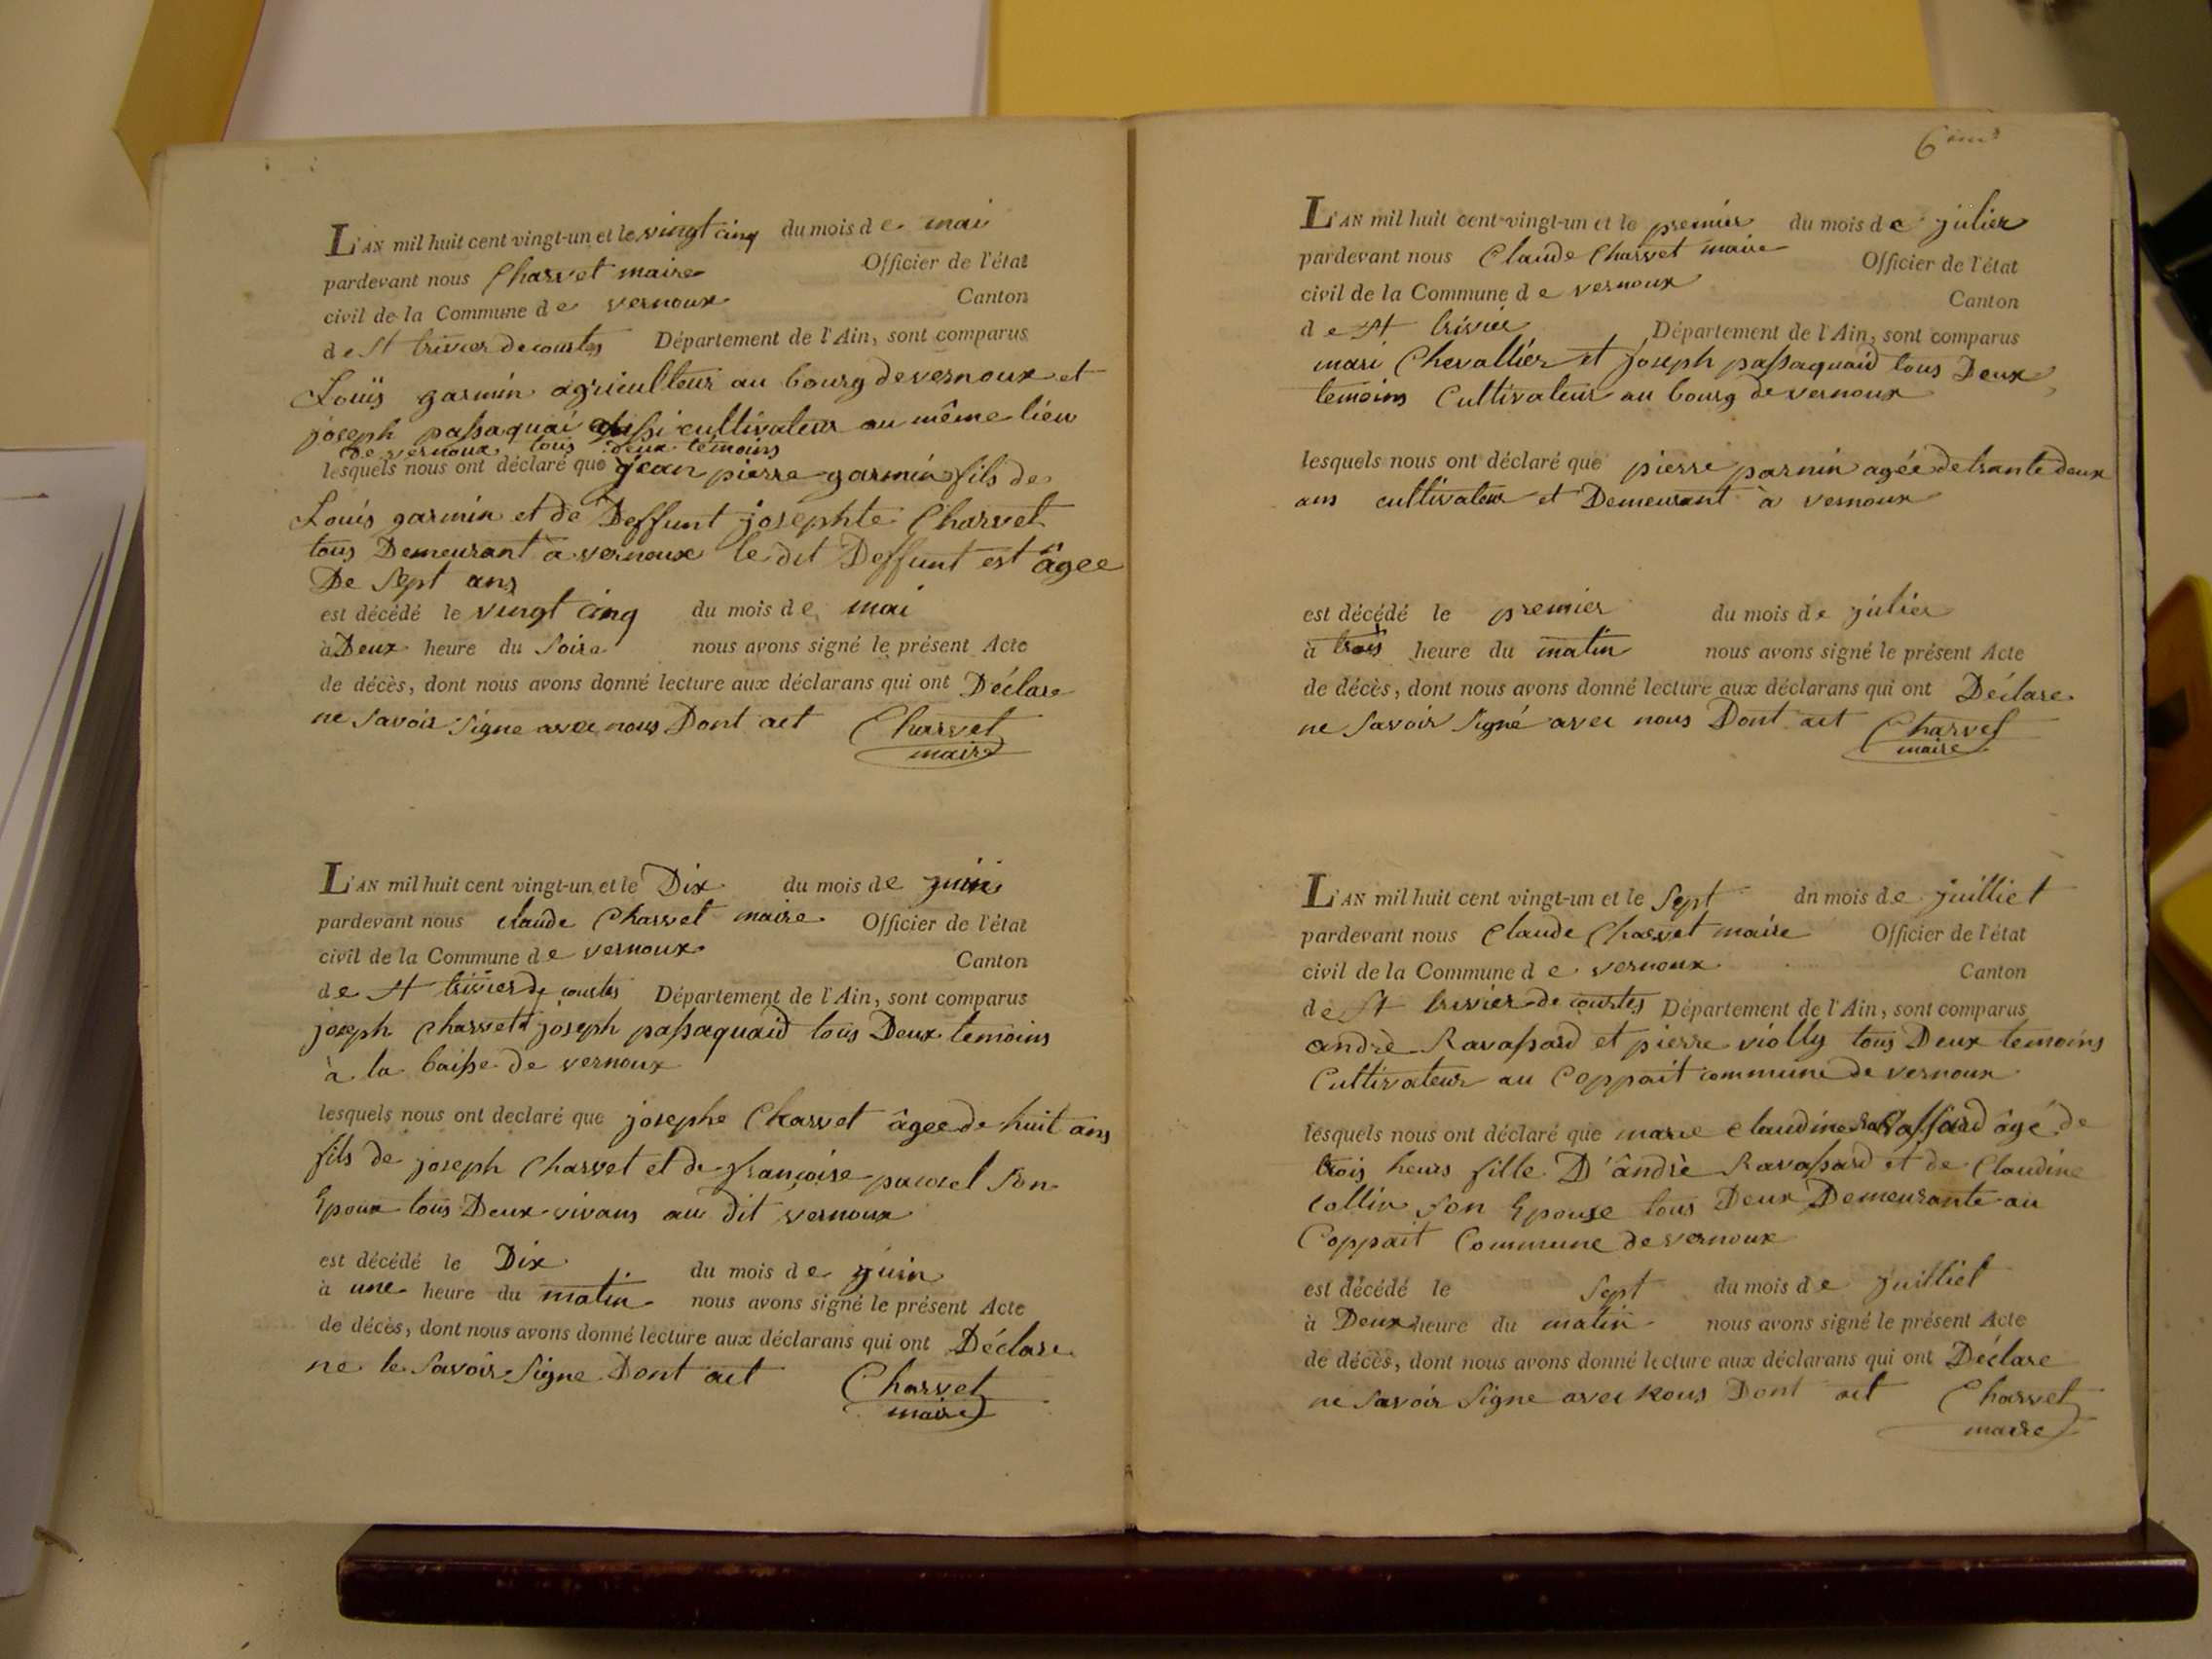 L'AN mil huit cent vingt-un et le vingt cinq du mois de mai
pardevant nous Charvet maire Officier de l'état
civil de la Commune de vernoux Canton
de St trivier de courtes Département de l'Ain, sont comparus
Louis garmin agriculteur au bourg de vernoux et
joseph passaquai aussi cultivateur au même lieu
de vernoux tous deux témoins
lesquels nous ont déclaré que jean pierre garmin fils de
Louis garmin et de Deffunt josephte Charvet
tous Demeurant à vernoux le dit Deffunt est âgee
De sept ans
est décédé le vingt cinq du mois de mai
à Deux heure du soire nous avons signé le présent Acte
de décès, dont nous avons donné lecture aux déclarans qui ont Déclare
ne savoir signe avec nous Dont act Charvet
maire
L'AN mil huit cent vingt-un et le Dix du mois de juin
pardevant nous claude Charvet maire Officier de l'état
civil de la Commune de vernoux Canton
de St trivier de courtes Département de l'Ain, sont comparus
joseph charvet et joseph passaquaid tous Deux temoins
à la baisse de vernoux
lesquels nous ont declaré que josephe Charvet âgee de huit ans
fils de joseph Charvet et de françoise son
Epoux tous Deux vivans au dit vernoux
est décédé le Dix du mois de juin
à une heure du matin nous avons signé le présent Acte
de décès, dont nous avons donné lecture aux déclarans qui ont Déclare
ne le savoir signe Dont act Charvet
maire
6eme
L'AN mil huit cent-vingt-un et le premier du mois de julier
pardevant nous Claude Charvet maire Officier de l'état
civil de la Commune de vernoux Canton
de St trivier Département de l'Ain, sont comparus
mari Chevallier et joseph passaquaid tous Deux
temoins Cultivateur au bourg de vernoux
lesquels nous ont déclaré que pierre parnin agée de trante deux
ans cultivateur et Demeurant à vernoux
est décédé le premier du mois de julier
à trois heure du matin nous avons signé le présent Acte
de décès, dont nous avons donné lecture aux déclarans qui ont Déclare
ne savoir signé avec nous Dont act Charvet
maire
L'AN mil huit cent vingt-un et le Sept dn mois de juilliet
pardevant nous Claude Charvet maire Officier de l'état
civil de la Commune de vernoux Canton
de St trivier de courtes Département de l'Ain, sont comparus
andrè Ravassard et pierre violly tous Deux temoins
Cultivateur au Coppait commune de vernoux
lesquels nous ont déclaré que marie claudine Ravassard âgé de
trois heurs fille D'ândrè Ravassard et de Claudine
collin son Epouse tous Deux Demeurante au
Coppait Commune de vernoux
est décédé le Sept du mois de juilliet
à Deux heure du matin nous avons signé le présent Acte
de décès, dont nous avons donné lecture aux déclarans qui ont Déclare
ne savoir signe avec nous Dont act Charvet
maire